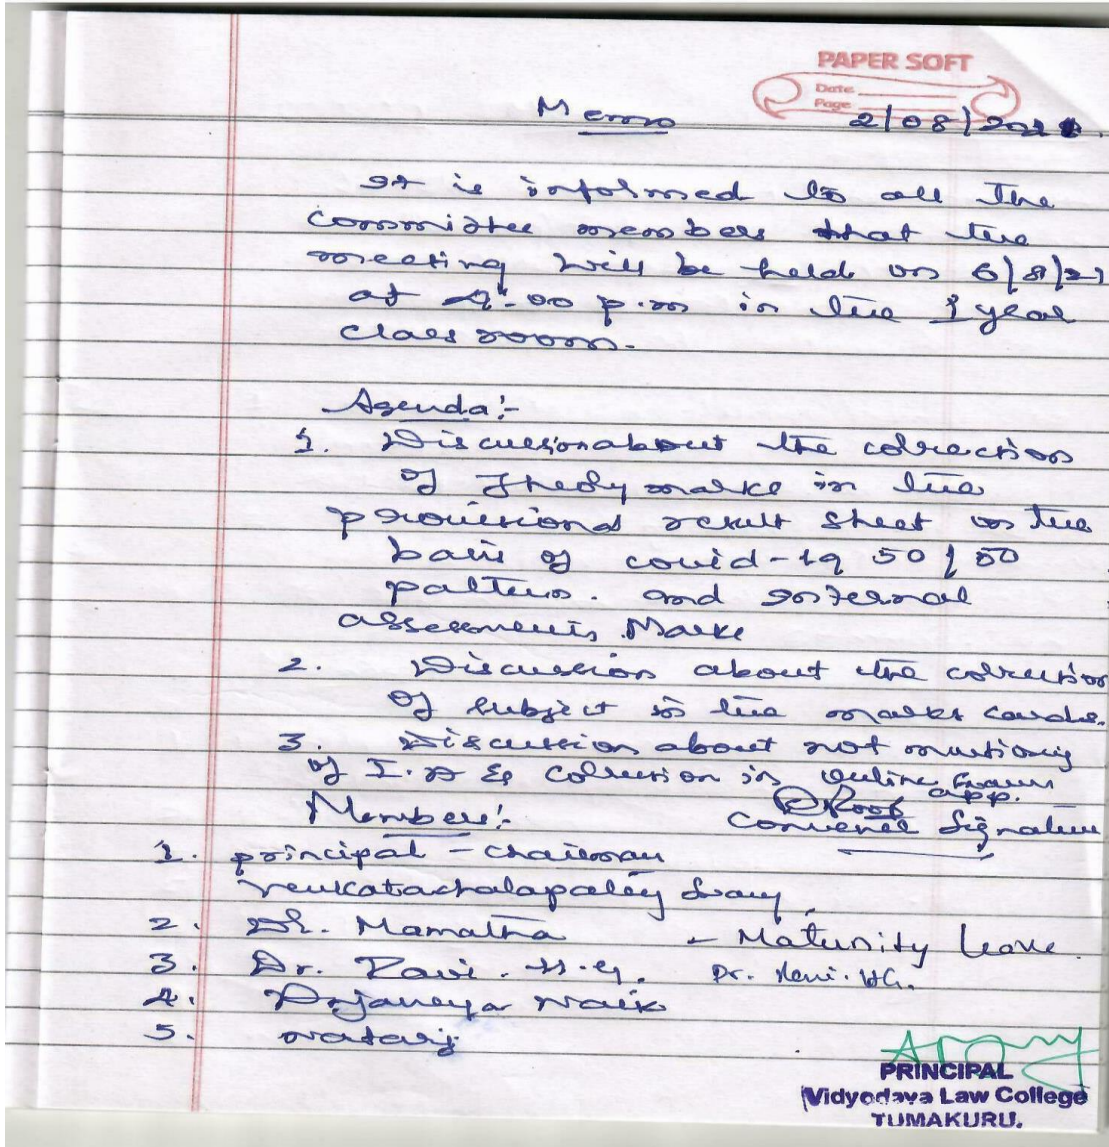 PAPER SOFT
Date
Page
Memo 2/08/2021.
It is informed to all the
committee members that the
meeting will be held on 6/8/21
at 4:00 p.m in the I year
class room.
Agenda:-
1. Discussion about the correction
of Theory marks in the
provisional result sheet on the
basis of covid-19 50/50
pattern. and Internal
assessments Marks
2. Discussion about the correction
of subject in the marks cards.
3. Discussion about not
of I. A & correction in online Exam
app.
Members:- Convener Signature
1. principal - chairman
Venkatachalapathy
2. Dr. Mamatha - Maturnity leave.
3. Dr. Ravi. H.G. Dr. Ravi. HG.
4. Naik
5. nataraj
PRINCIPAL
Vidyodaya Law College
TUMAKURU.